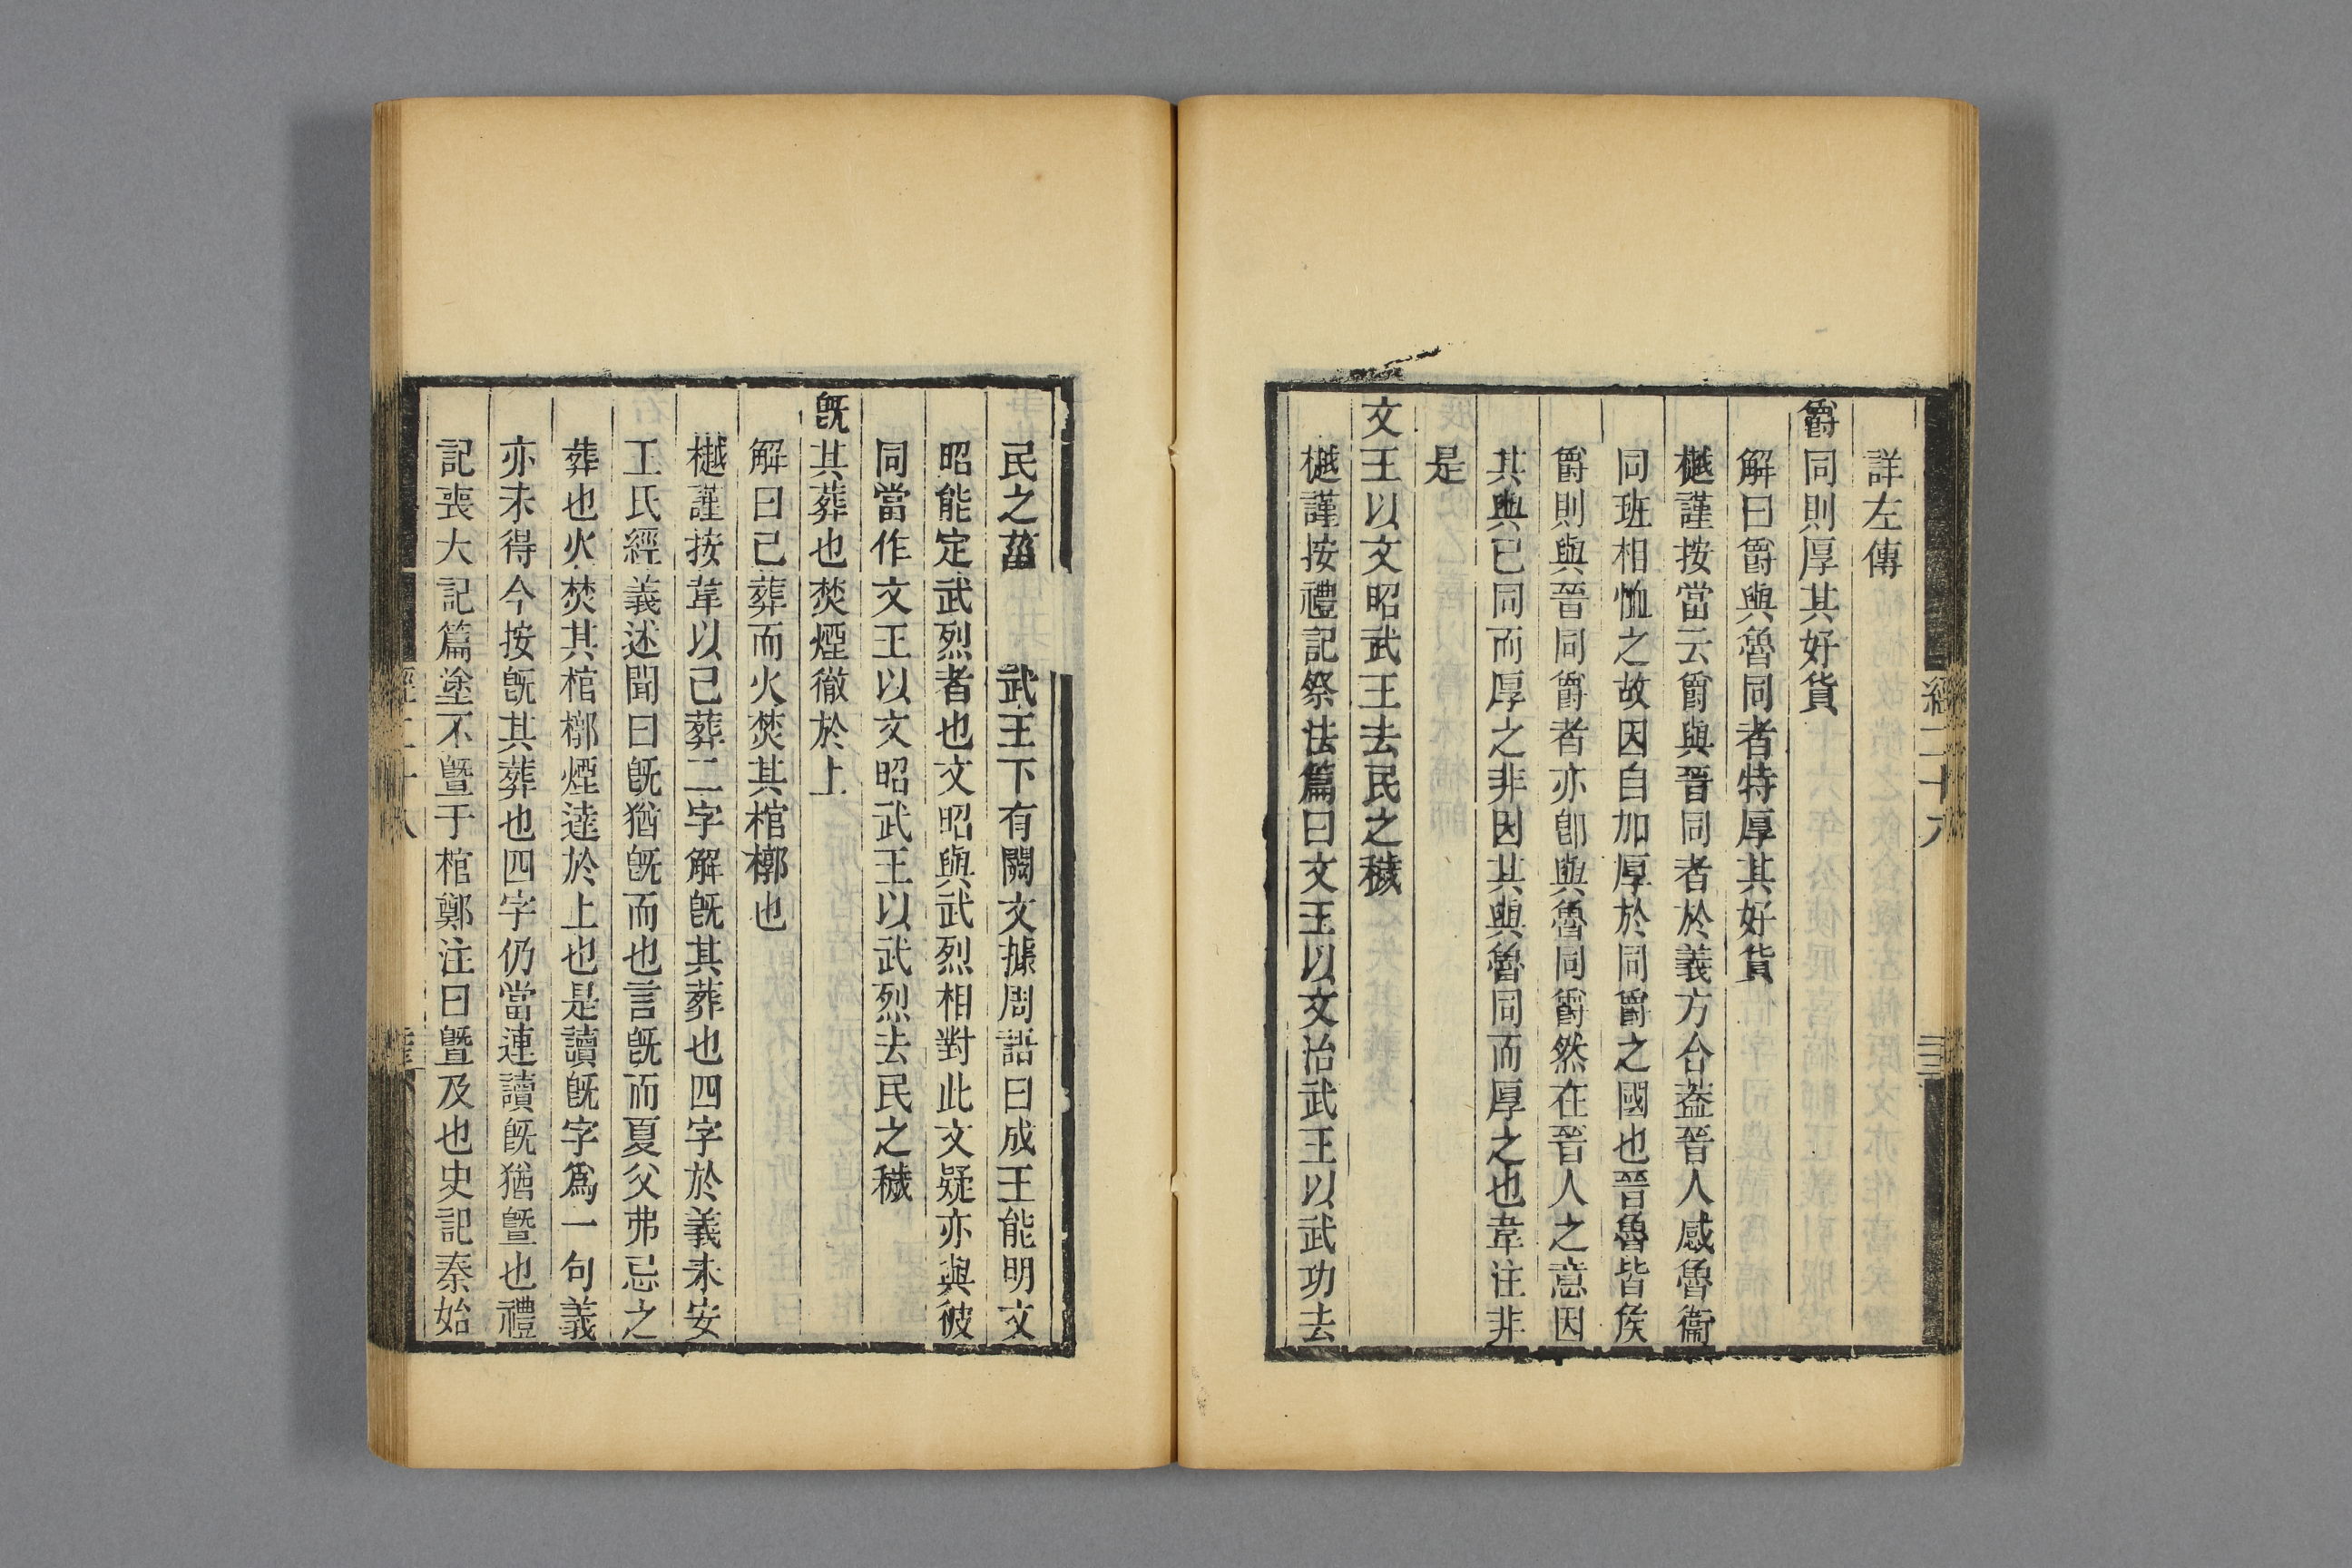 詳左傳
爵同則厚其好貨
解曰爵與魯同者特厚其好貨
樾謹按當云爵與晉同者於義方合葢晉人感魯衞
同班相恤之故因自加厚於同爵之國也晉魯皆矦
爵則與晉同爵者亦卽與魯同爵然在晉人之意因
其與已同而厚之非因其與魯同而厚之也韋注非
是
文王以文昭武王去民之穢
樾謹按禮記祭法篇曰文王以文治武王以武功去
民之菑 武王下有闕文據周語曰成王能明文
昭能定武烈者也文昭與武烈相對此文疑亦與彼
同當作文王以文昭武王以武烈去民之穢
旣其葬也焚煙徹於上
解曰已葬而火焚其棺槨也
樾謹按韋以已葬二字解旣其葬也四字於義未安
王氏經義述聞曰旣猶旣而也言旣而夏父弗忌之
葬也火焚其棺槨煙達於上也是讀旣字爲一句義
亦未得今按旣其葬也四字仍當連讀旣猶曁也禮
記喪大記篇塗不曁于棺鄭注曰曁及也史記秦始
經二十八